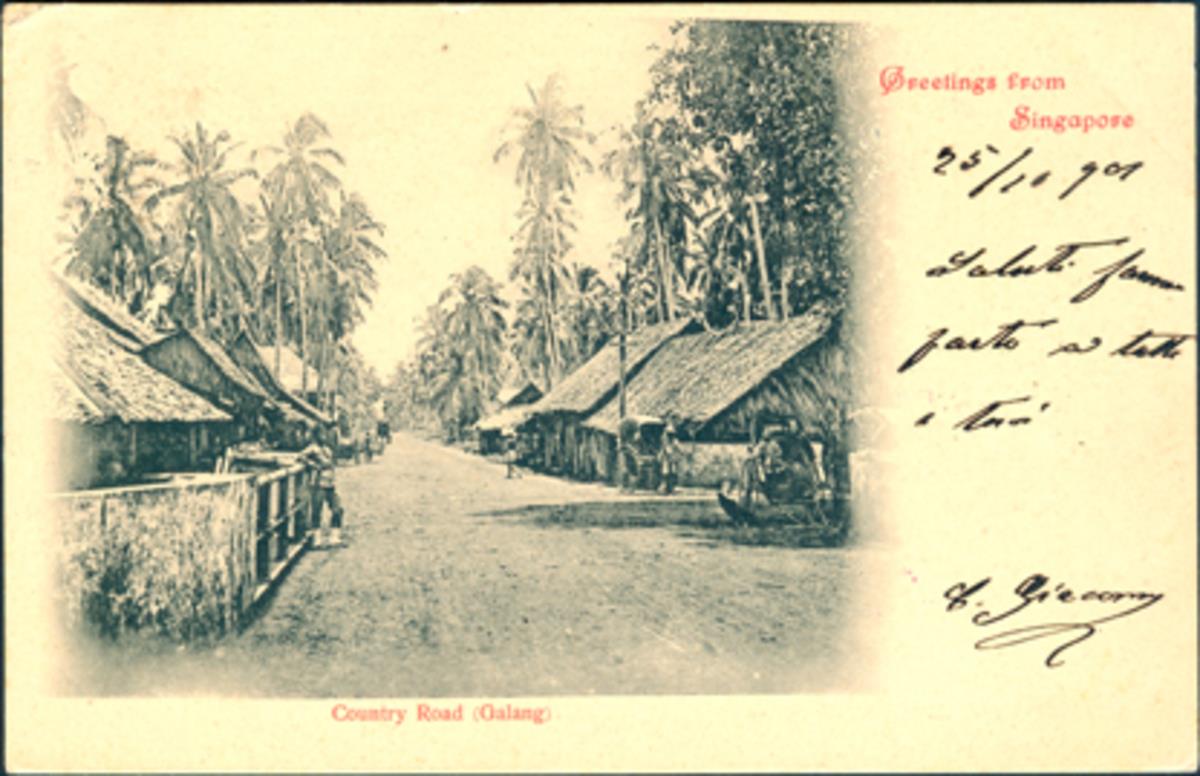 Greetings from
Singapore
25/10 901
Saluti
a tutti
i tuoi
Country Road (Galang)